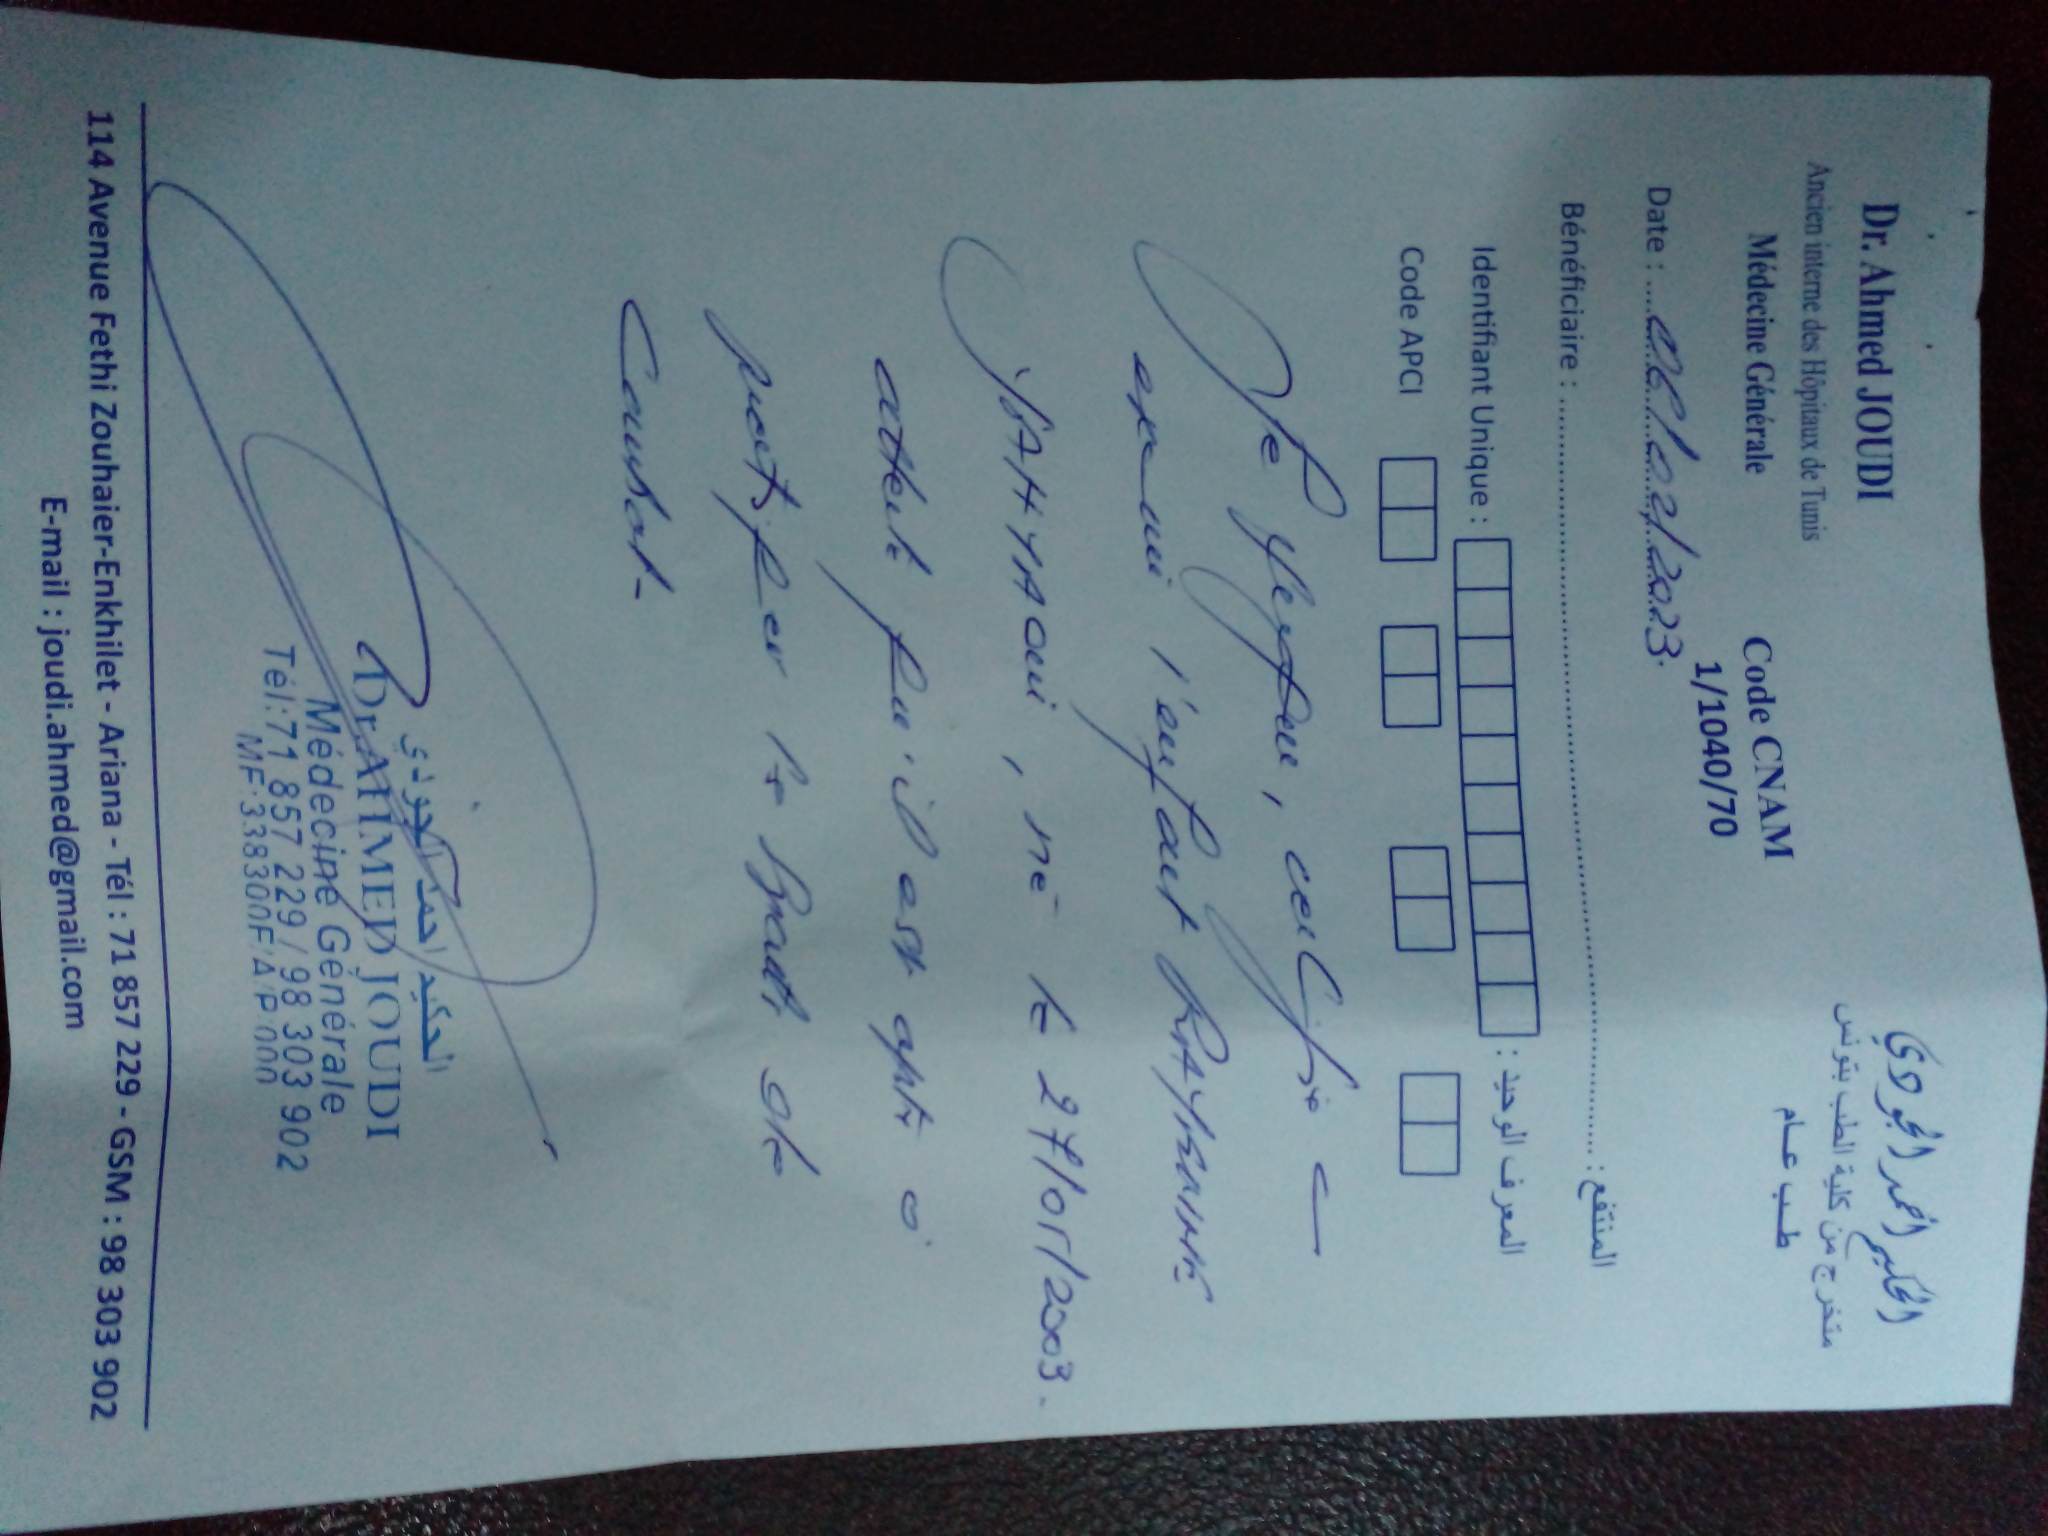 Dr. Ahmed JOUDI
Ancien interne des Hôpitaux de Tunis
Médecine Générale
Code CNAM
1/1040/70
الحكيم احمد الجودي
متخرج من كلية الطب بتونس
طب عام
Date : 06/02/2023.
Bénéficiaire : : المنتفع
Identifiant Unique : : المعرف الوحيد
Code APCI
Je , certifie
examiné l'enfant
YAHYAOUI, né le 27/05/2003.
atteste qu'il est apte à
pratiquer le sport de
Combat.
الحكيم احمد الجودي
Dr AHMED JOUDI
Médecine Générale
Tél:71 857 229 / 98 303 902
114 Avenue Fethi Zouhaier-Enkhilet - Ariana - Tél : 71 857 229 - GSM : 98 303 902
E-mail : joudi.ahmed@gmail.com